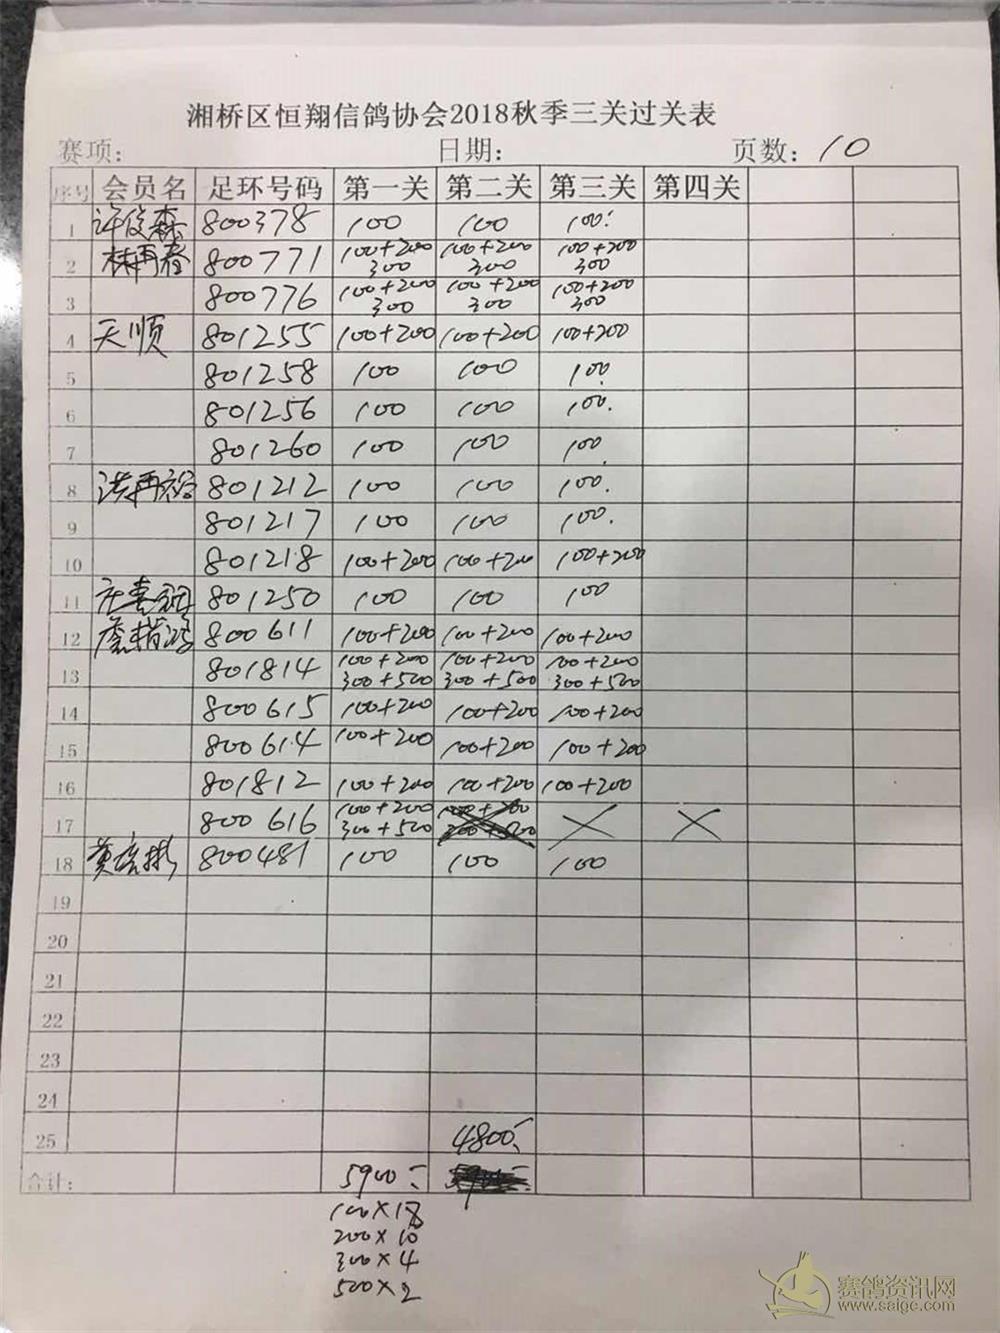 湘桥区恒翔信鸽协会2018秋季三关过关表
赛项: 日期: 页数: 10
序号 会员名 足环号码 第一关 第二关 第三关 第四关
1 许俊森 800378 100 100 100.
2 林再春 800771 100+200 300 100+200 300 100+200 300
3 800776 100+200 300 100+200 300 100+200 300
4 天顺 801255 100+200 100+200 100+200
5 801258 100 100 100.
6 801256 100 100 100.
7 801260 100 100 100.
8 801212 100 100 100.
9 801217 100 100 100.
10 801218 100+200 100+200 100+200
11 801250 100 100 100
12 800611 100+200 100+200 100+200
13 801814 100+200 300+500 100+200 300+500 100+200 300+500
14 800615 100+200 100+200 100+200
15 800614 100+200 100+200 100+200
16 801812 100+200 100+200 100+200
17 800616 100+200 300+500 × ×
18 800481 100 100 100
19
20
21
22
23
24
25 4800.-
合计: 5900.-
100×18
200×10
300×4
500×2
赛鸽资讯网
www.saige.com